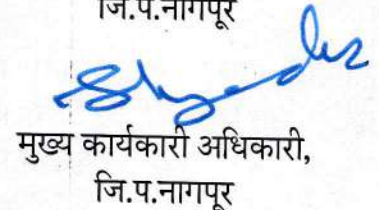 जि.प.नागपूर
मुख्य कार्यकारी अधिकारी,
जि.प.नागपूर